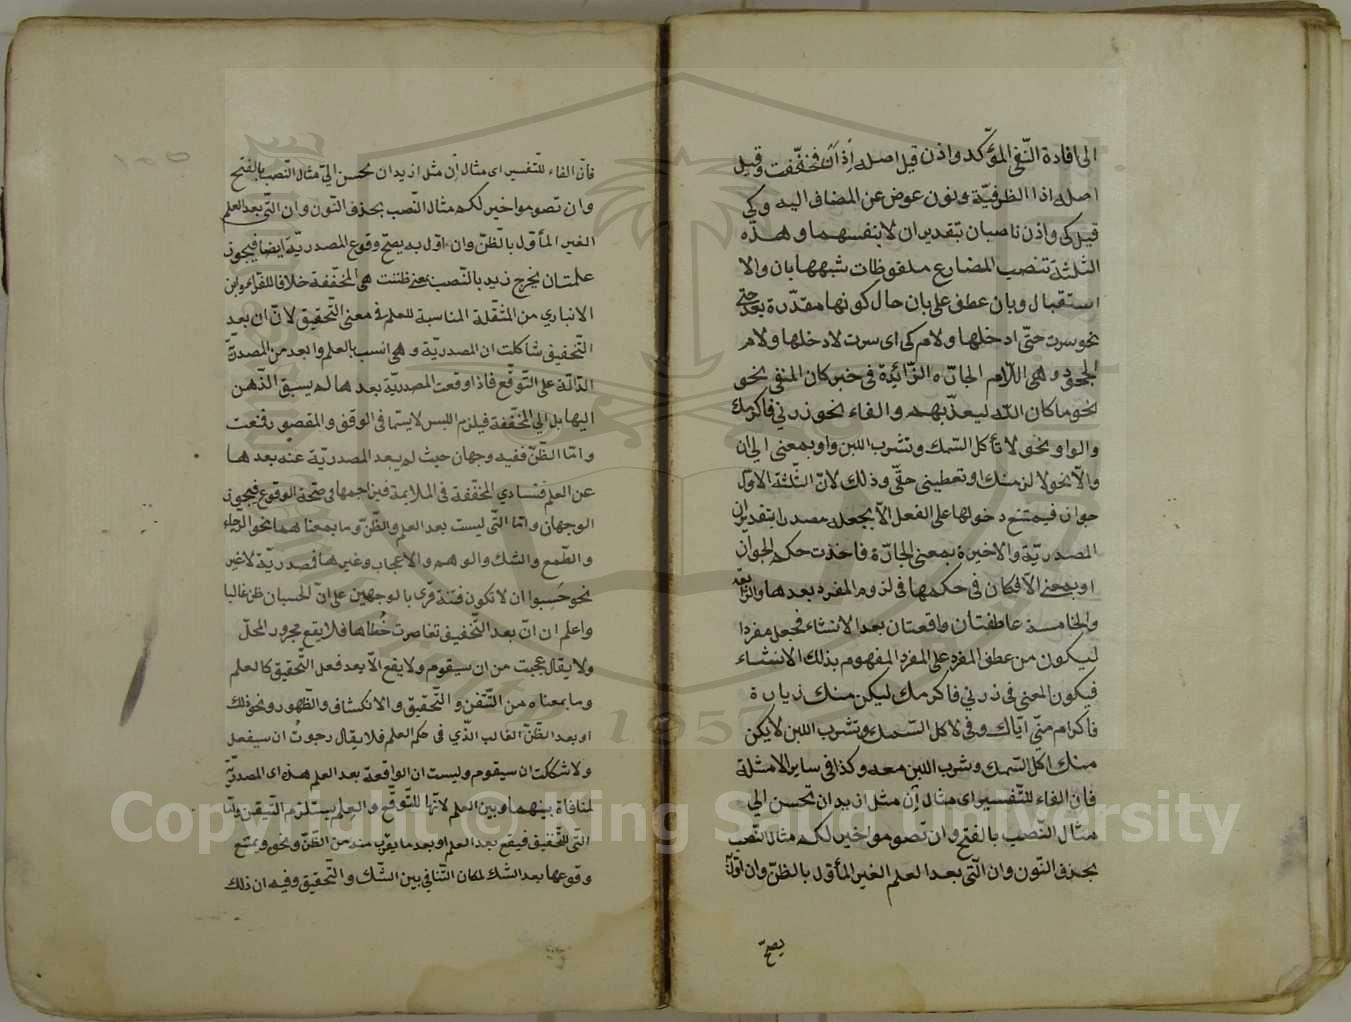 الى افادة النّفى المؤكّد واذن قيل اصله إذ أن فخففت وقيل
اصله اذا الظرفيّة ونون عوض عن المضاف اليه وكى
قيل كى واذن ناصبان بتقدير ان لا بنفسهما وهذه
الثلثة تنصب المضارع ملفوظات شبهها بان ولا
استقبال وبان عطف على بان حال كونها مقدّرة بعد حتى
نحو سرت حتّى ادخلها ولام كى اى سرت لادخلها ولام
الجحود وهى اللام الجارّة الزّائدة فى خبر كان المنفى نحو
نحو ما كان الله ليعذّبهم والفاء نحو زرنى فاكرمك
والواو نحو لا تأكل السّمك وتشرب اللبن واو بمعنى الى ان
والّا نحو لالزمنك او تعطينى حقّى وذلك لانّ الثّلثة الاول
جوارّ فيمتنع دخولها على الفعل الّا بجعله مصدرا بتقدير ان
المصدريّة والاخيرة بمعنى الجارّة فاخذت حكم الجوارّ
او بمعنى الّا فكان فى حكمها فى لزوم المفرد بعدها والرّابعة
والخامسة عاطفتان واقعتان بعد الانشاء فجعل مفردا
ليكون من عطف المفرد على المفرد المفهوم بذلك الانشاء
فيكون المعنى فى زرنى فاكرمك ليكن منك زيارة
فاكرام منّى ايّاك وفى لا تأكل السّمك وتشرب اللبن لا يكن
منك اكل السّمك وشرب اللبن معه وكذا فى ساير الامثلة
فان الفاء للتّفسير اى مثال إن مثل اريد ان تحسن الى
مثال النّصب بالفتح وان تصوموا خير لكم مثال النّصب
بحذف النّون وان الّتى بعد العلم الغير المأوّل بالظّنّ وان اوّل به
يصحّ
فان الفاء للتّفسير اى مثال إن مثل اريد ان تحسن الىّ مثال النّصب بالفتح
وان تصوموا خير لكم مثال النّصب بحذف النّون وان الّتى بعد العلم
الغير المأوّل بالظّنّ وان اوّل به يصحّ وقوع المصدريّة ايضا فيجوز
علمت ان يخرج زيد بالنّصب بمعنى ظننت هى المخففة خلافا للفراء وابن
الانبارى من المثقلة المناسبة للعلم فى معنى التّحقيق لانّ ان بعد
التّخفيف شاكلت ان المصدريّة وهى انسب بالعلم وابعد من المصدريّة
الدّالّة على التّوقّع فاذا وقعت المصدريّة بعدها لم يسبق الذّهن
اليها بل الى المخفّفة فيلزم اللبس لا سيّما فى الوقف والمقصور فمنعت
وامّا الظّنّ ففيه وجهان حيث لم يبعد المصدريّة عنه بعدها
عن العلم فتساوى المخفّفة فى الملايمة فيزاحمها فى صحّة الوقوع فيجوز
الوجهان وامّا الّتى ليست بعد العلم والظّنّ وما بمعناهما نحو الرّجاء
والطّمع والشك والوهم والاعجاب وغيرها فمصدريّة لا غير
نحو حَسِبوا ان لا تكون فتنة قرى بالوجهين على انّ الحسبان ظن غالبا
واعلم ان انّ بعد التّخفيف تقاصرت خُطاها فلا يقع مجرور المحلّ
ولا يقال عجبت من ان سيقوم ولا يقع الّا بعد فعل التّحقيق كالعلم
وما بمعناه من التّيقّن والتّحقيق والانكشاف والظّهور ونحو ذلك
او بعد الظّنّ الغالب الذّى فى حكم العلم فلا يقال رجوتُ ان سيفعل
ولا شككت ان سيقوم وليست ان الواقعة بعد العلم هذه اى المصدريّة
لمنافاة بينهما وبين العلم لانّها للتّوقّع والعلم يستلزم التّيقّن وامّا
الّتى للتّحقيق فيقع بعد العلم او بعد ما يقرب منه من الظّنّ ونحوه ويمتنع
وقوعها بعد الشك لمكان التّنافى بين الشّك والتّحقيق وفيه ان ذلك
1957
Copyright © King Saud University